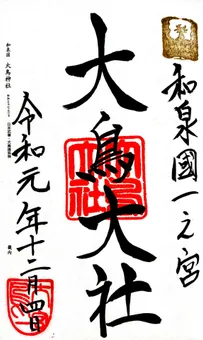 和泉國一之宮
大鳥大社
令和元年十二月四日
和泉國 大鳥神社